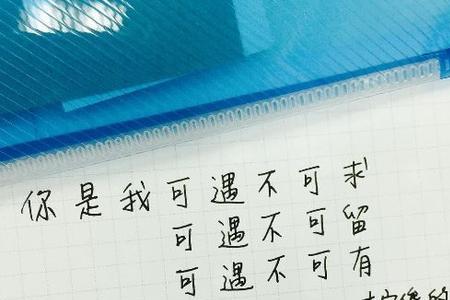 你是我可遇不可求
可遇不可留
可遇不可有